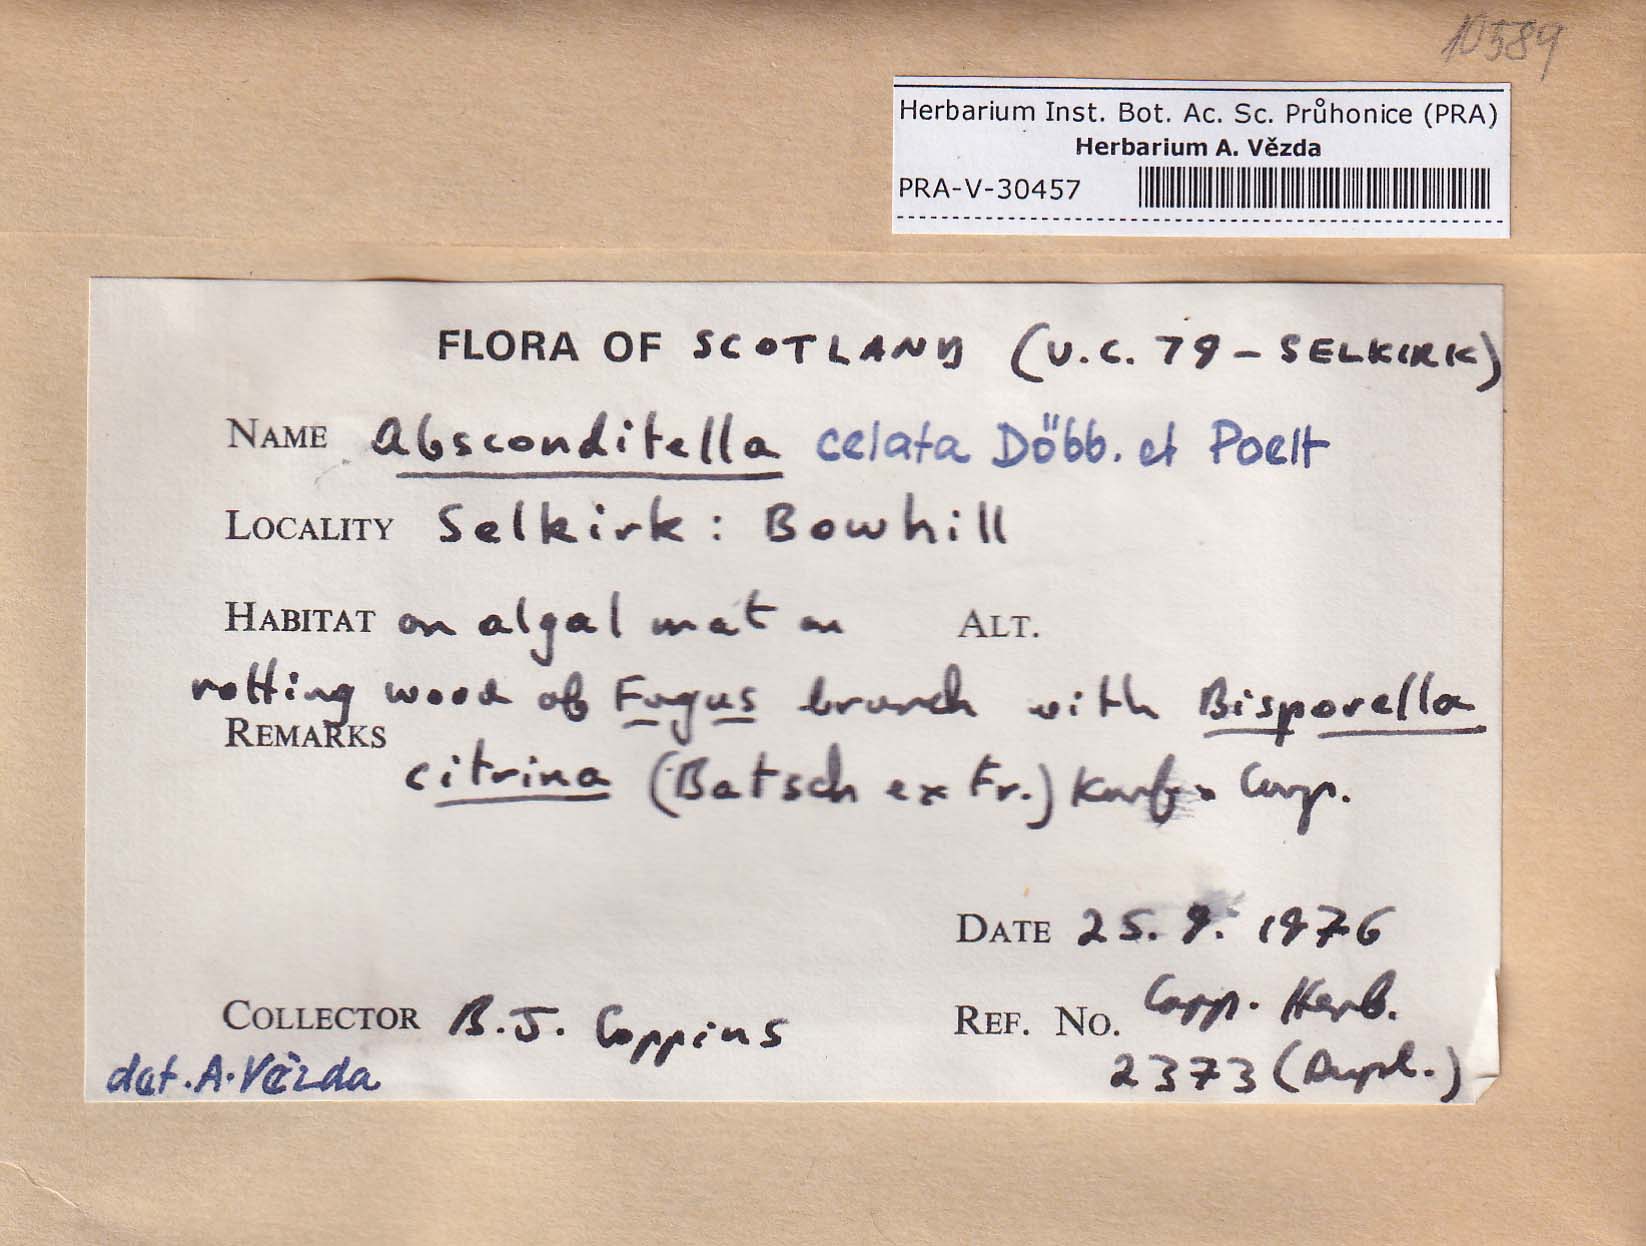 10589
Herbarium Inst. Bot. Ac. Sc. Průhonice (PRA)
Herbarium A. Vězda
PRA-V-30457
FLORA OF SCOTLAND (V.C. 79 – SELKIRK)
NAME Absconditella celata Döbb. et Poelt
LOCALITY Selkirk : Bowhill
HABITAT on algal mat on ALT.
rotting wood of Fagus branch with Bisporella
REMARKS
citrina (Batsch ex Fr.) Korf & Carp.
DATE 25. 9. 1976
COLLECTOR B. J. Coppins
REF. No. Copp. Herb.
det. A. Vězda
2373 (Dupl.)